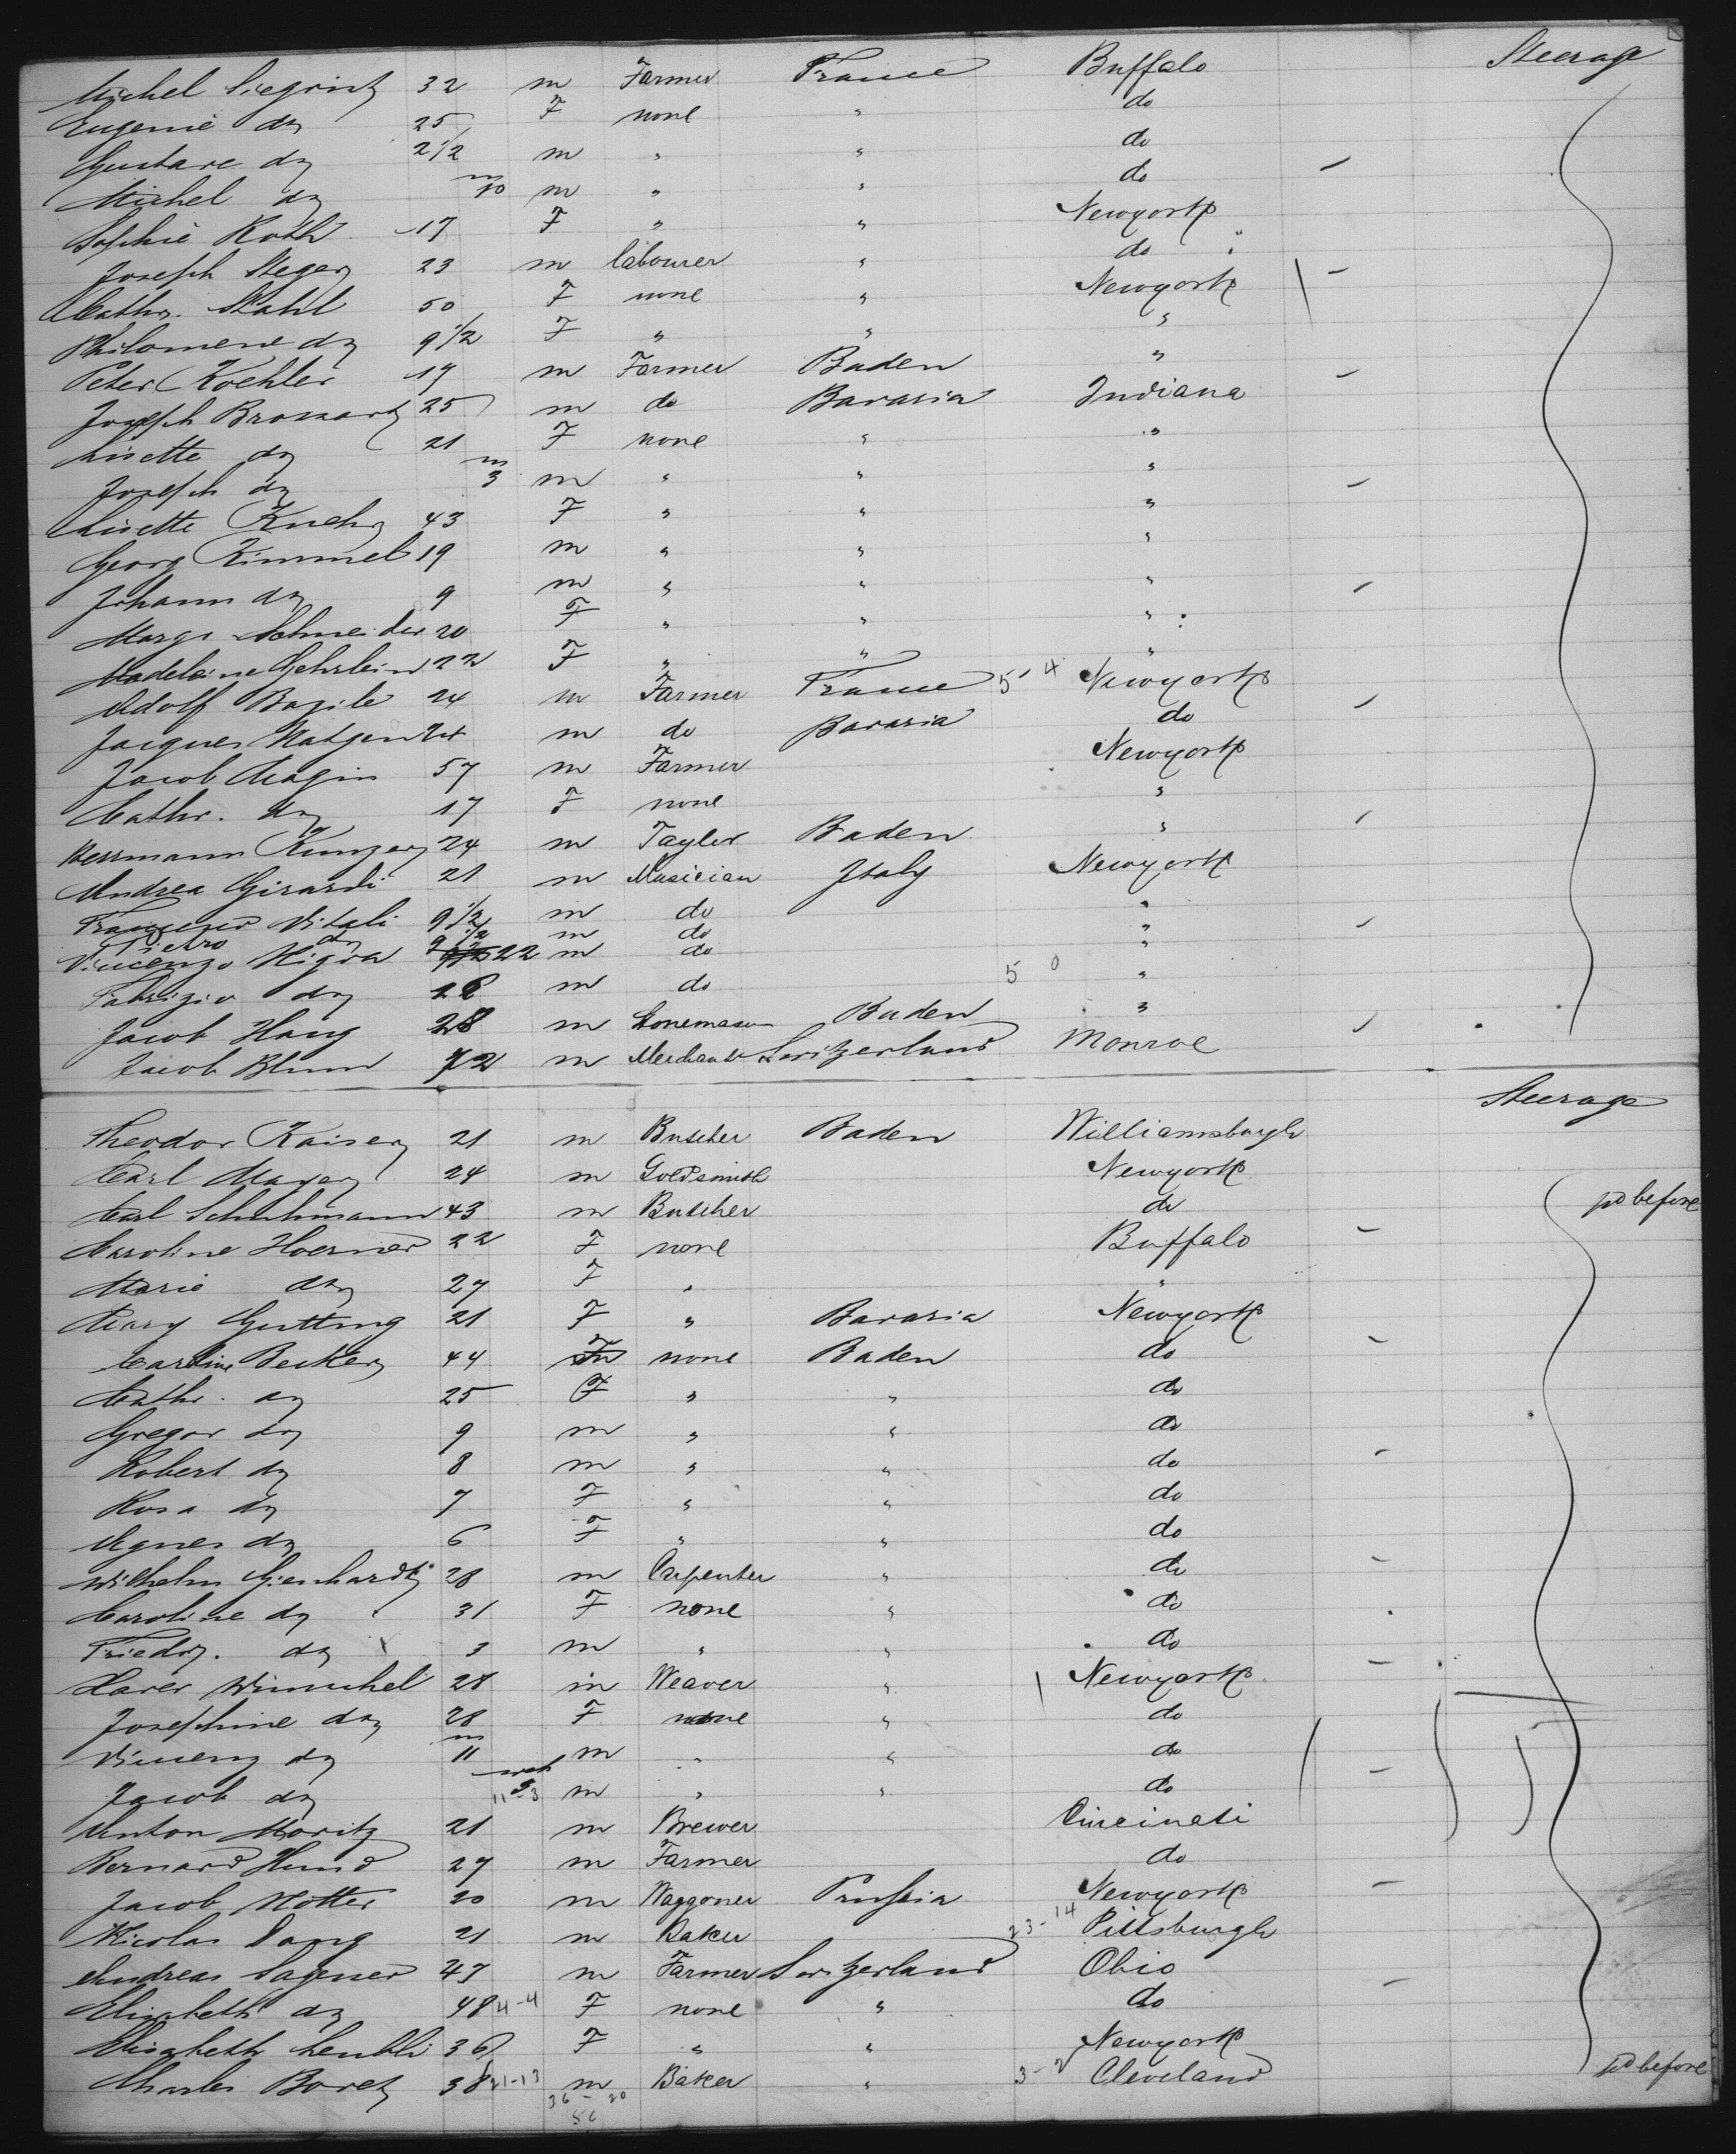 Steerage
Michel Siegrist 32 m Farmer France Buffalo
Eugenie do 25 F none " do
Gustave do 2 1/2 m " " do
Michel do m 10 m " " do
Sophie Roth 17 F " " Newyork
Joseph Steger 23 m labourer " do
Cathr. Stahl 50 F none " Newyork
Philomene do 9 1/2 F " " "
Peter Koehler 19 m Farmer Baden "
Joseph Brossart 25 m do Bavaria Indiana
Lisette do 21 F none " "
Joseph do m 3 m " " "
Lisette Kuehn 43 F " " "
Georg Kimmel 19 m " " "
Johann do 9 m " " "
Margr Schneider 20 F " " "
Madeleine Gehrlein 22 F " " "
Adolf Bazile 24 m Farmer France 5 4 Newyork
Jacques 24 m do Bavaria do
Jacob Magin 57 m Farmer Newyork
Cathr. do 17 F none "
Herrmann Kunzer 24 m Tayler Baden "
Andrea Girardi 21 m Musician Italy Newyork
Francesco Vitali 9 1/2 m do "
Pietro do 9 1/2 m do "
Vincenzo Nigra 22 m do "
Fabrizio do m do 5 0 "
Jacob Haug 28 m Stonemason Baden "
Jacob Blum 72 m Merchant Switzerland Monroe
Steerage
Theodor Kaiser 21 m Butcher Baden Williamsburgh
Carl Mayer 24 m Goldsmith Newyork
pd before
Carl Schuhmann 43 m Butcher do
Caroline Hoerner 22 F none Buffalo
Marie do 27 F " "
Mary Gutting 21 F " Bavaria Newyork
Caroline Becker 44 F none Baden do
Cathr. do 25 F " " do
Gregor do 9 m " " do
Robert do 8 m " " do
Rosa do 7 F " " do
Agnes do 6 F " " do
Wilhelm Gienhardt 28 m Carpenter " do
Caroline do 31 F none " do
Friedr. do 3 m " " do
Xaver Wunschel 28 m Weaver " Newyork
Josephine do 28 F none " do
Vincenz do m 11 m " " do
Jacob do m " " do
Anton Moritz 21 m Brewer Cincinati
Bernard Hund 27 m Farmer do
Jacob Hotter 20 m Waggoner Prussia Newyork
Nicolas Lang 21 m Baker 23-14 Pittsburgh
Andreas Sagener 47 m Farmer Switzerland Ohio
Elisabeth do 48 4-4 F none " do
Elisabeth Leuthli 36 F " " Newyork
Charles Boret 38 21-13 m Baker " 3-2 Cleveland pd before
36 - 20
56